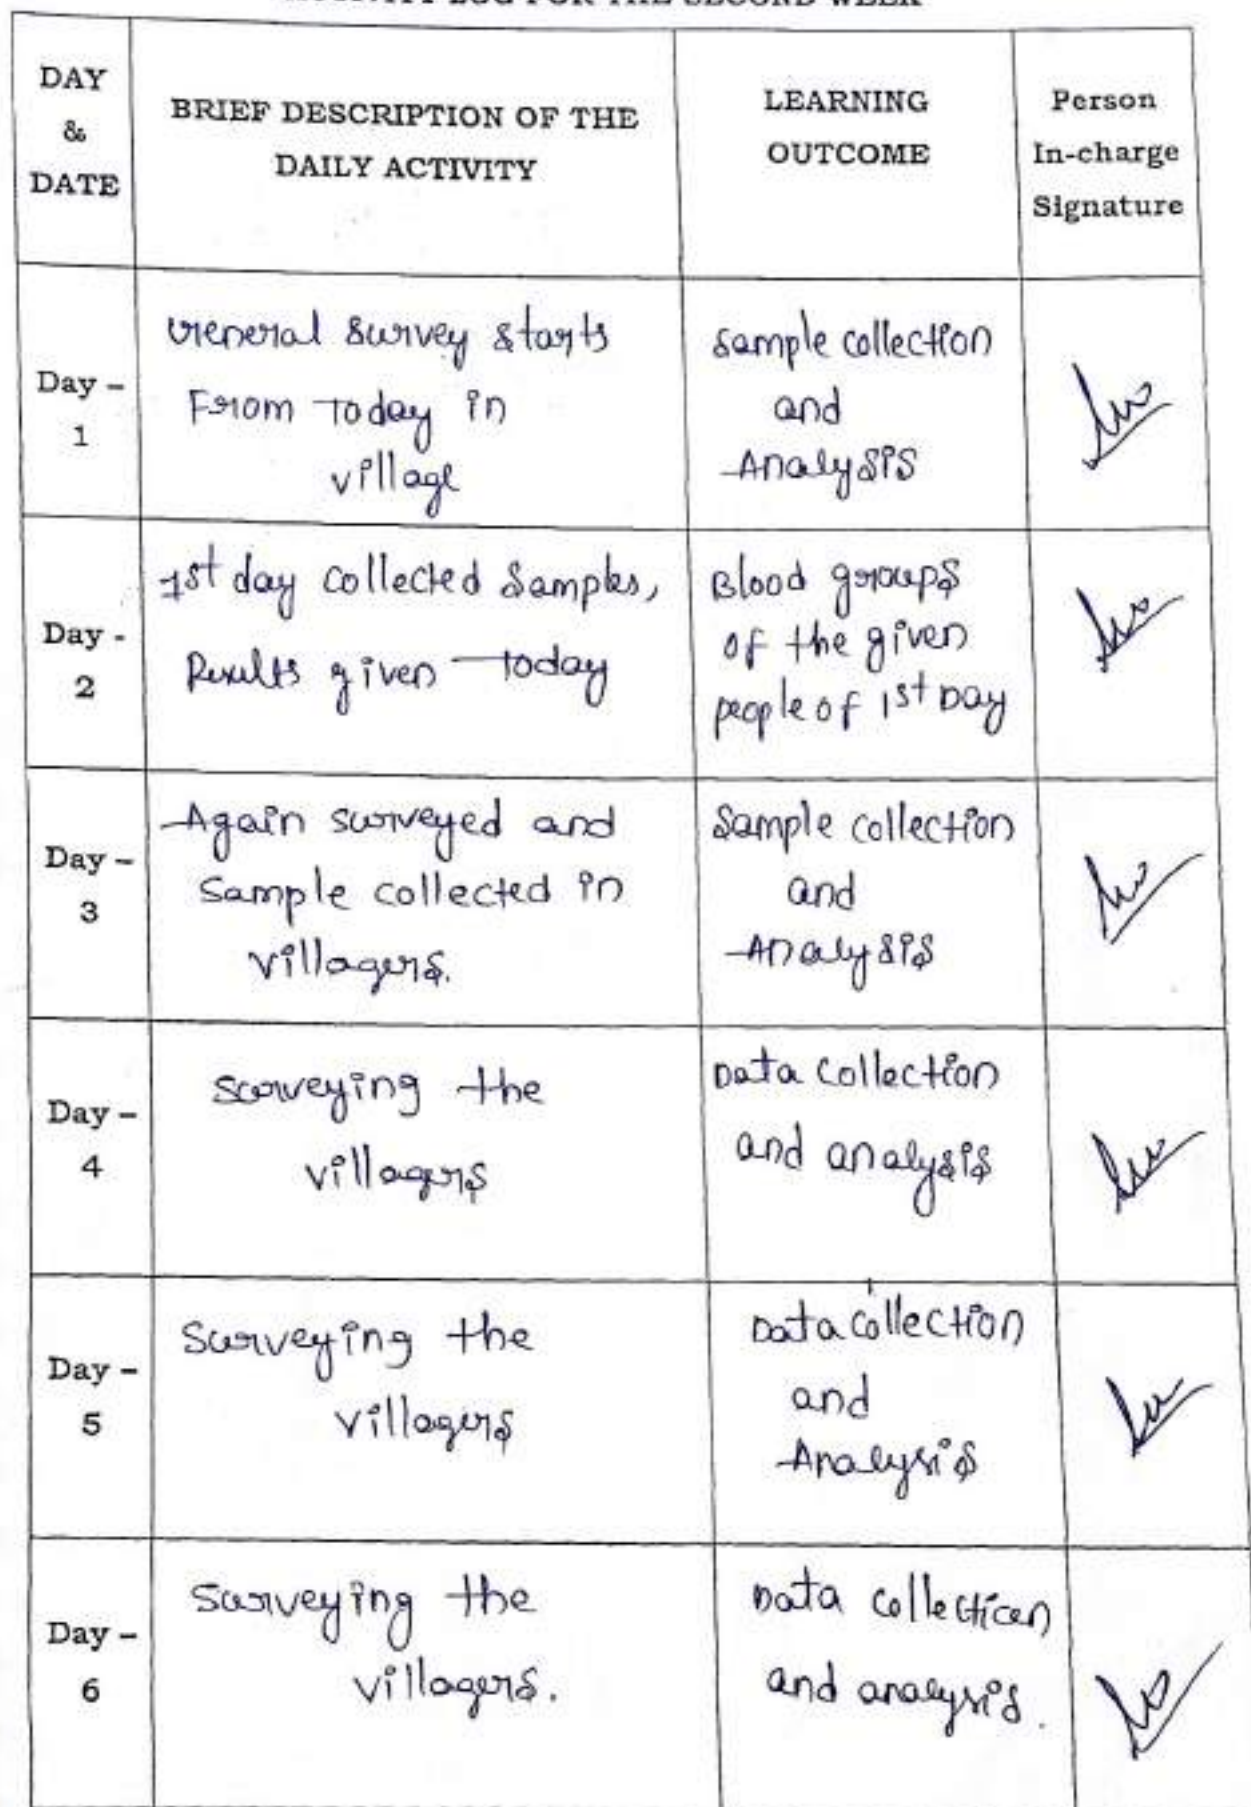 ACTIVITY LOG FOR THE SECOND WEEK
DAY
&
DATE
BRIEF DESCRIPTION OF THE
DAILY ACTIVITY
LEARNING
OUTCOME
Person
In-charge
Signature
Day –
1
General survey starts
From today in
village
Sample collection
and
Analysis
Day -
2
1st day collected samples,
Results given today
Blood groups
of the given
people of 1st Day
Day –
3
Again surveyed and
Sample collected in
villagers.
Sample collection
and
Analysis
Day –
4
Surveying the
villagers
Data collection
and analysis
Day –
5
Surveying the
villagers
Data collection
and
Analysis
Day –
6
Surveying the
villagers.
Data collection
and analysis.